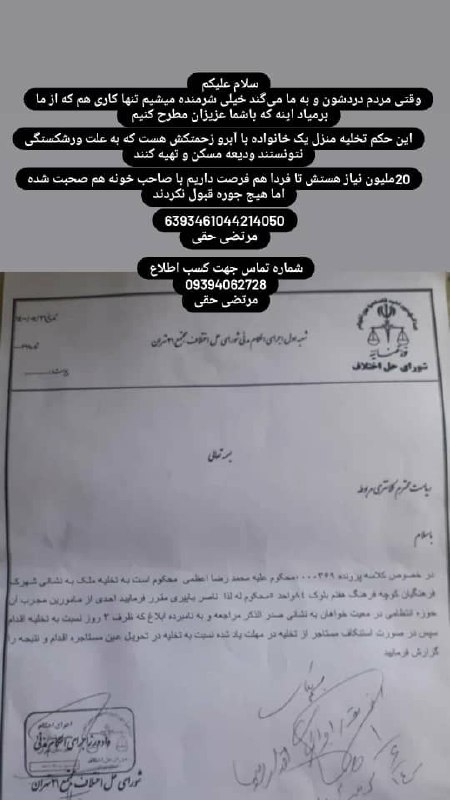 سلام علیکم
وقتی مردم دردشون و به ما می‌گند خیلی شرمنده میشیم تنها کاری هم که از ما
برمیاد اینه که باشما عزیزان مطرح کنیم
این حکم تخلیه منزل یک خانواده با ابرو زحمتکش هست که به علت ورشکستگی
نتونستند ودیعه مسکن و تهیه کنند
20ملیون نیاز هستش تا فردا هم فرصت داریم با صاحب خونه هم صحبت شده
اما هیچ جوره قبول نکردند
6393461044214050
مرتضی حقی
شماره تماس جهت کسب اطلاع
09394062728
مرتضی حقی
شورای حل اختلاف
شعبه اول اجرای احکام مدنی شورای حل اختلاف مجتمع ۲۱ تهران
بسمه تعالی
ریاست محترم کلانتری مربوطه
باسلام
در خصوص کلاسه پرونده ۰۰۰۳۶۹ محکوم علیه محمد رضا اعظمی محکوم است به تخلیه ملک به نشانی شهرک
فرهنگیان کوچه فرهنگ هفتم بلوک ۴ واحد ۴ محکوم له لذا ناصر باپیری مقرر فرمایید احدی از مامورین مجرب آن
حوزه انتظامی در معیت خواهان به نشانی صدر الذکر مراجعه و به نامبرده ابلاغ که ظرف ۳ روز نسبت به تخلیه اقدام
سپس در صورت استنکاف مستاجر از تخلیه در مهلت یاد شده نسبت به تخلیه در تحویل عین مستاجره اقدام و نتیجه را
گزارش فرمایید
اجرای احکام
دادورز اجرای احکام مدنی
شورای حل اختلاف مجتمع ۲۱ تهران